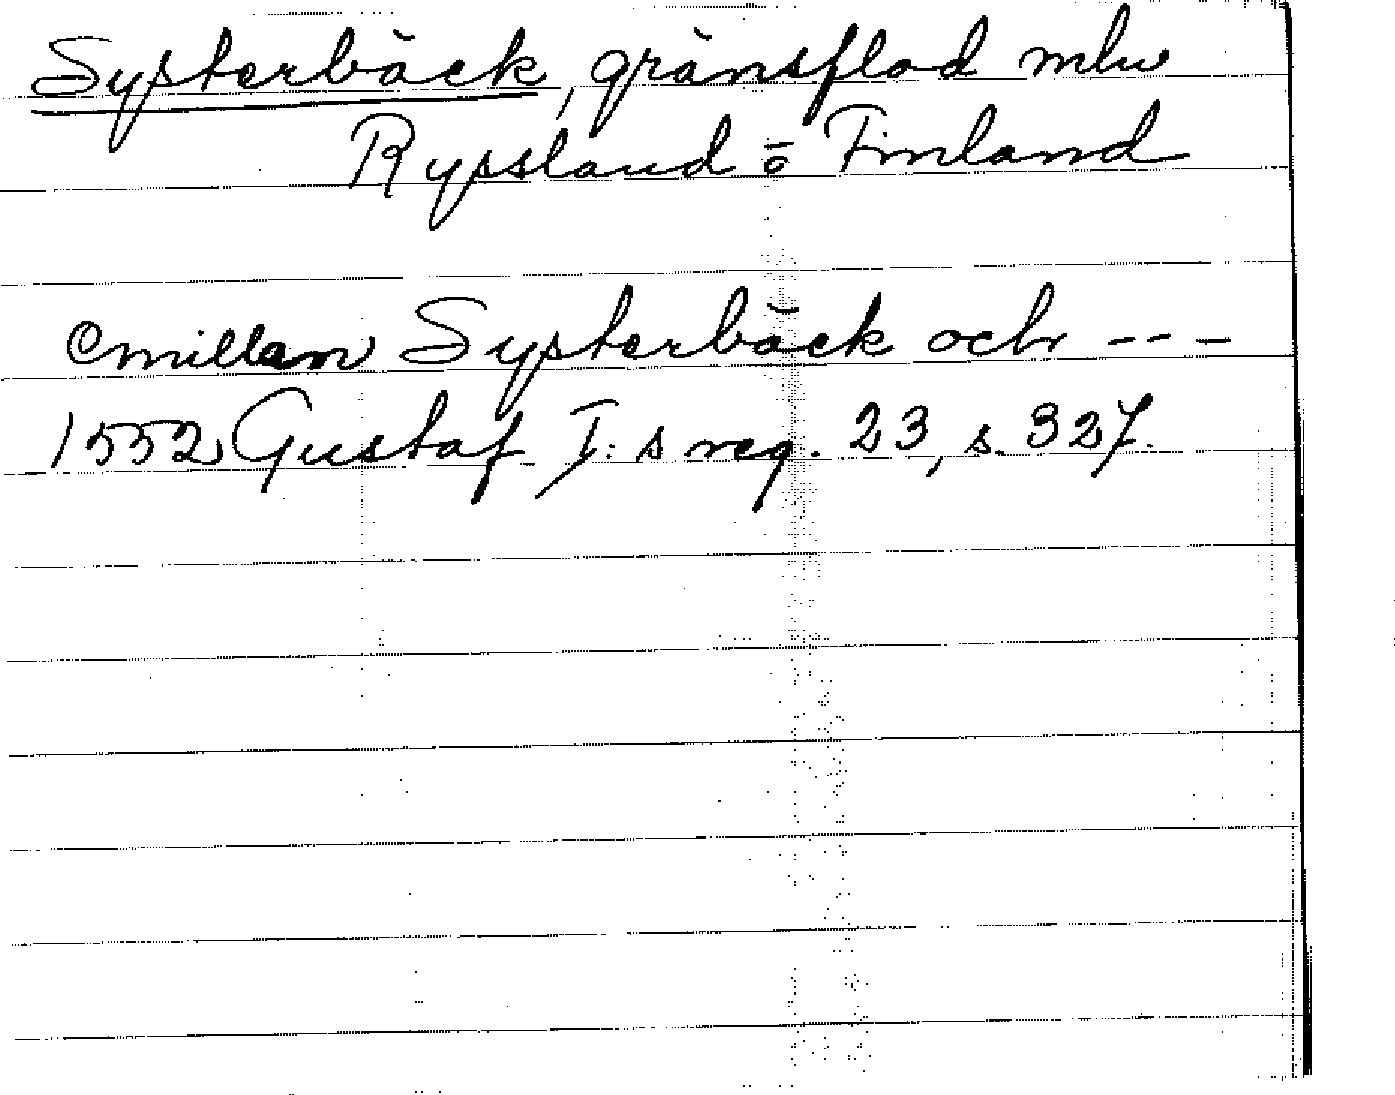 Systerbäck, gränsflod mlw
Ryssland o Finland
emillan Systerbäck och ---
1552 Gustaf I:s reg. 23, s. 327.